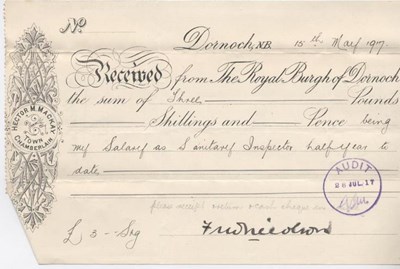 No.
Dornoch, N.B. 15th May 1917
Received from The Royal Burgh of Dornoch
the sum of Three Pounds
Shillings and Pence being
my Salary as Sanitary Inspector half year to
date
HECTOR M. MACKAY
TOWN
CHAMBERLAIN.
AUDIT
28 JUL. 17
please receipt return
£ 3 -